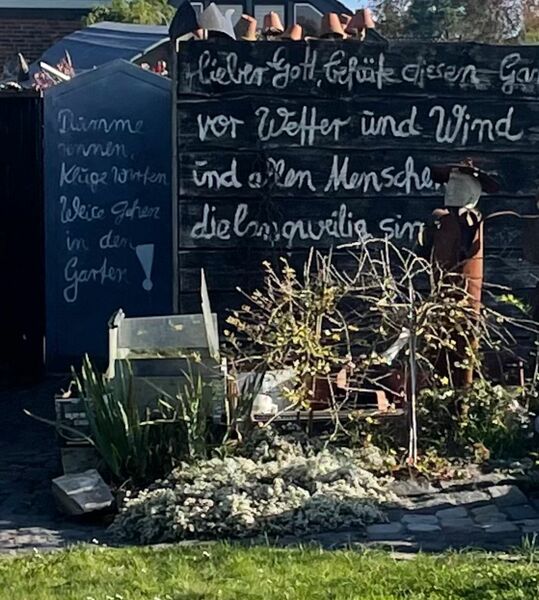 Dumme
rennen,
Kluge warten
Weise gehen
in den
Garten!
lieber Gott, behüte diesen Gar
vor Wetter und Wind
und allen Menschen
die langweilig sin